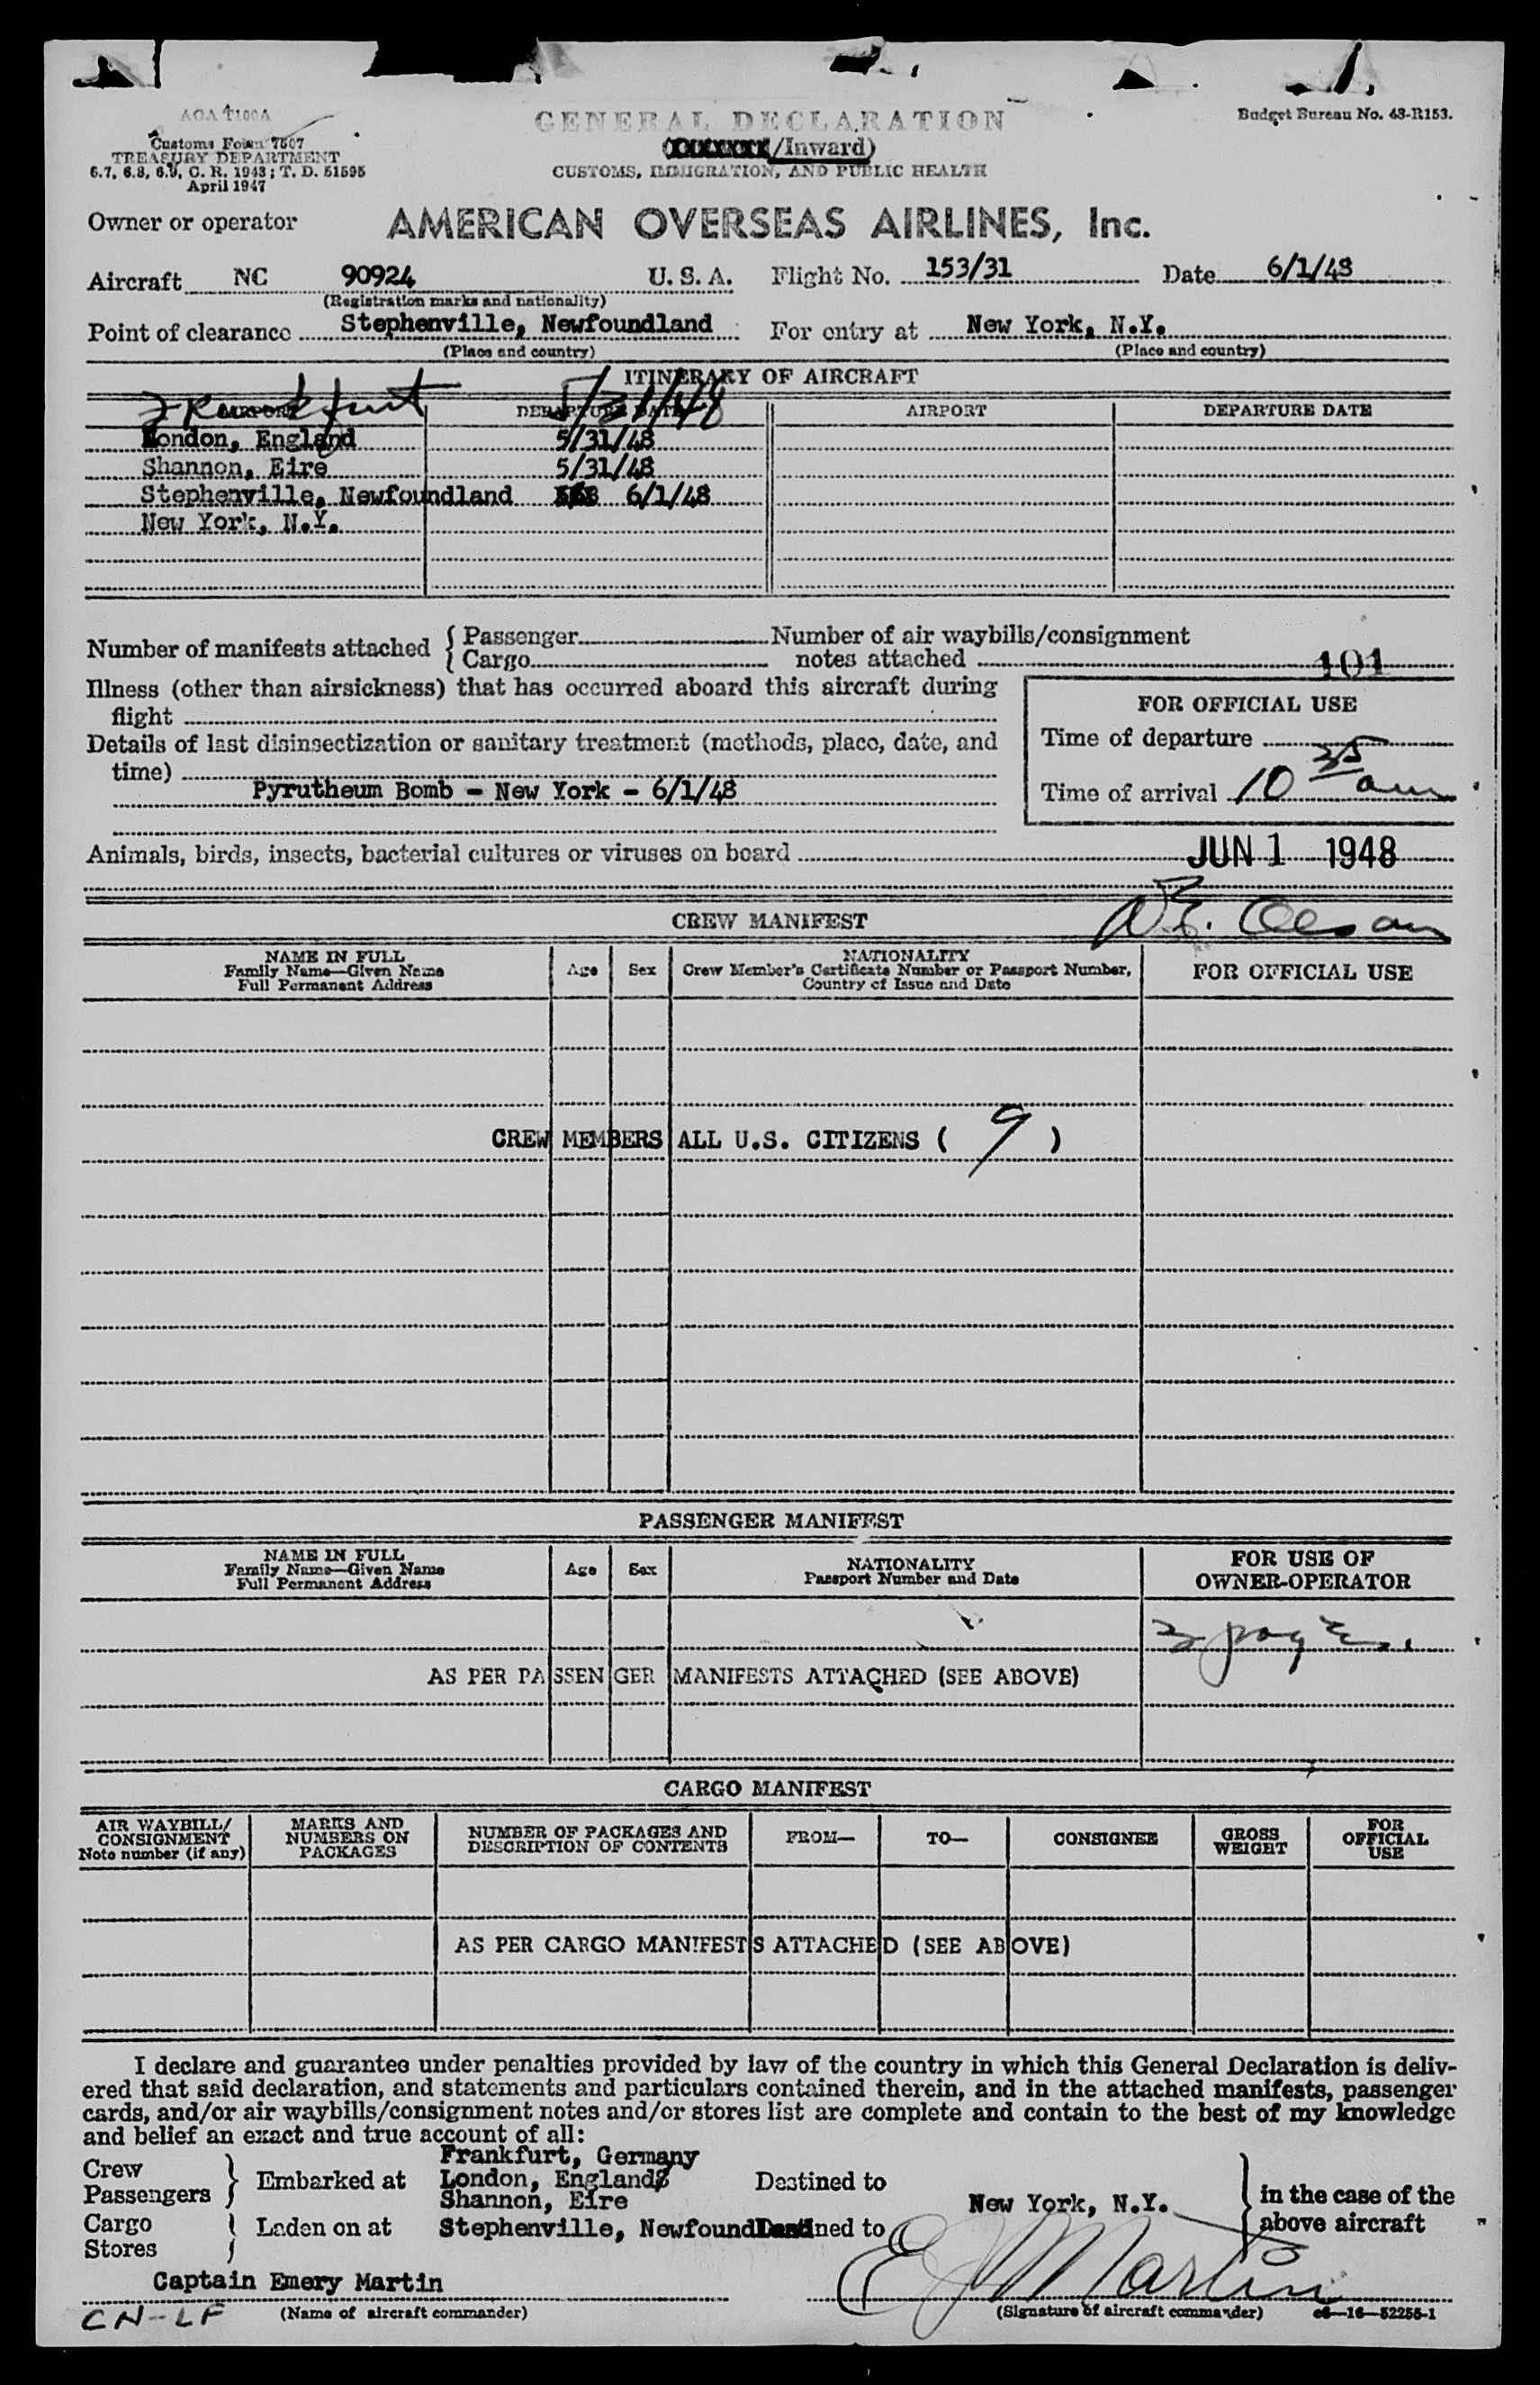 AOA T100A
Customs Form 7507
TREASURY DEPARTMENT
6.7, 6.8, 6.9, C. R. 1943; T. D. 51595
April 1947
GENERAL DECLARATION
(XXXXXXX/Inward)
CUSTOMS, IMMIGRATION, AND PUBLIC HEALTH
Budget Bureau No. 48-R153.
Owner or operator AMERICAN OVERSEAS AIRLINES, Inc.
Aircraft NC 90924 U. S. A. Flight No. 153/31 Date 6/1/48
(Registration marks and nationality)
Point of clearance Stephenville, Newfoundland For entry at New York, N.Y.
(Place and country) (Place and country)
ITINERARY OF AIRCRAFT
AIRPORT DEPARTURE DATE AIRPORT DEPARTURE DATE
Frankfurt 5/31/48
London, England 5/31/48
Shannon, Eire 5/31/48
Stephenville, Newfoundland 6/1/48
New York, N.Y.
Number of manifests attached { Passenger Number of air waybills/consignment
Cargo notes attached 101
Illness (other than airsickness) that has occurred aboard this aircraft during
flight
Details of last disinsectization or sanitary treatment (methods, place, date, and
time)
Pyrutheum Bomb - New York - 6/1/48
FOR OFFICIAL USE
Time of departure
Time of arrival 10 35 am
Animals, birds, insects, bacterial cultures or viruses on board JUN 1 1948
CREW MANIFEST
NAME IN FULL
Family Name—Given Name
Full Permanent Address
Age Sex
NATIONALITY
Crew Member's Certificate Number or Passport Number,
Country of Issue and Date
FOR OFFICIAL USE
CREW MEMBERS ALL U.S. CITIZENS ( 9 )
PASSENGER MANIFEST
NAME IN FULL
Family Name—Given Name
Full Permanent Address
Age Sex
NATIONALITY
Passport Number and Date
FOR USE OF
OWNER-OPERATOR
pages.
AS PER PASSENGER MANIFESTS ATTACHED (SEE ABOVE)
CARGO MANIFEST
AIR WAYBILL/
CONSIGNMENT
Note number (if any)
MARKS AND
NUMBERS ON
PACKAGES
NUMBER OF PACKAGES AND
DESCRIPTION OF CONTENTS
FROM— TO— CONSIGNEE
GROSS
WEIGHT
FOR
OFFICIAL
USE
AS PER CARGO MANIFESTS ATTACHED (SEE ABOVE)
I declare and guarantee under penalties provided by law of the country in which this General Declaration is deliv-
ered that said declaration, and statements and particulars contained therein, and in the attached manifests, passenger
cards, and/or air waybills/consignment notes and/or stores list are complete and contain to the best of my knowledge
and belief an exact and true account of all:
Crew
Passengers } Embarked at
Frankfurt, Germany
London, England
Shannon, Eire
Destined to
New York, N.Y.
} in the case of the
above aircraft
Cargo
Stores } Laden on at Stephenville, Newfoundland Destined to
Captain Emery Martin E J Martin
CN-LF (Name of aircraft commander) (Signature of aircraft commander) c6—16—52255-1